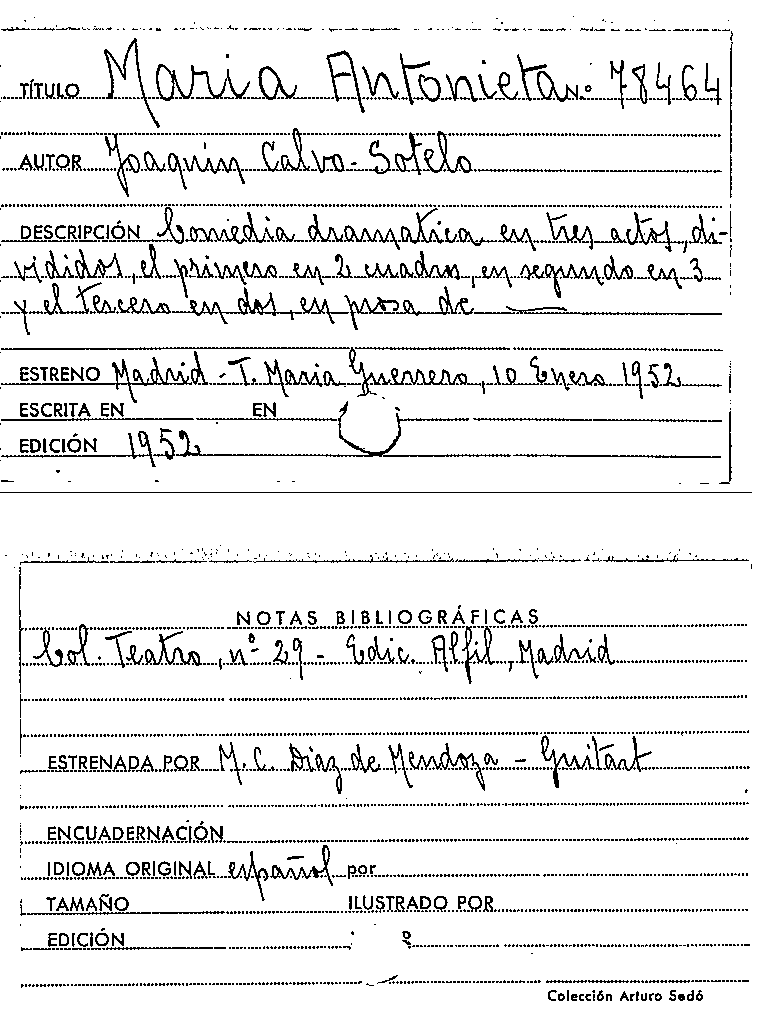 TÍTULO Maria Antonieta N.º 78464
AUTOR Joaquin Calvo-Sotelo
DESCRIPCIÓN Comedia dramatica en tres actos, di-
vididos, el primero en 2 cuadros, en segundo en 3
y el tercero en dos, en prosa de —
ESTRENO Madrid - T. Maria Guerrero, 10 Enero 1952
ESCRITA EN EN
EDICIÓN 1952
NOTAS BIBLIOGRÁFICAS
Col. Teatro, nº 29 - Edic. Alfil, Madrid
ESTRENADA POR M. C. Diaz de Mendoza - Guitart
ENCUADERNACIÓN
IDIOMA ORIGINAL español por
TAMAÑO ILUSTRADO POR
EDICIÓN
Colección Arturo Sedó